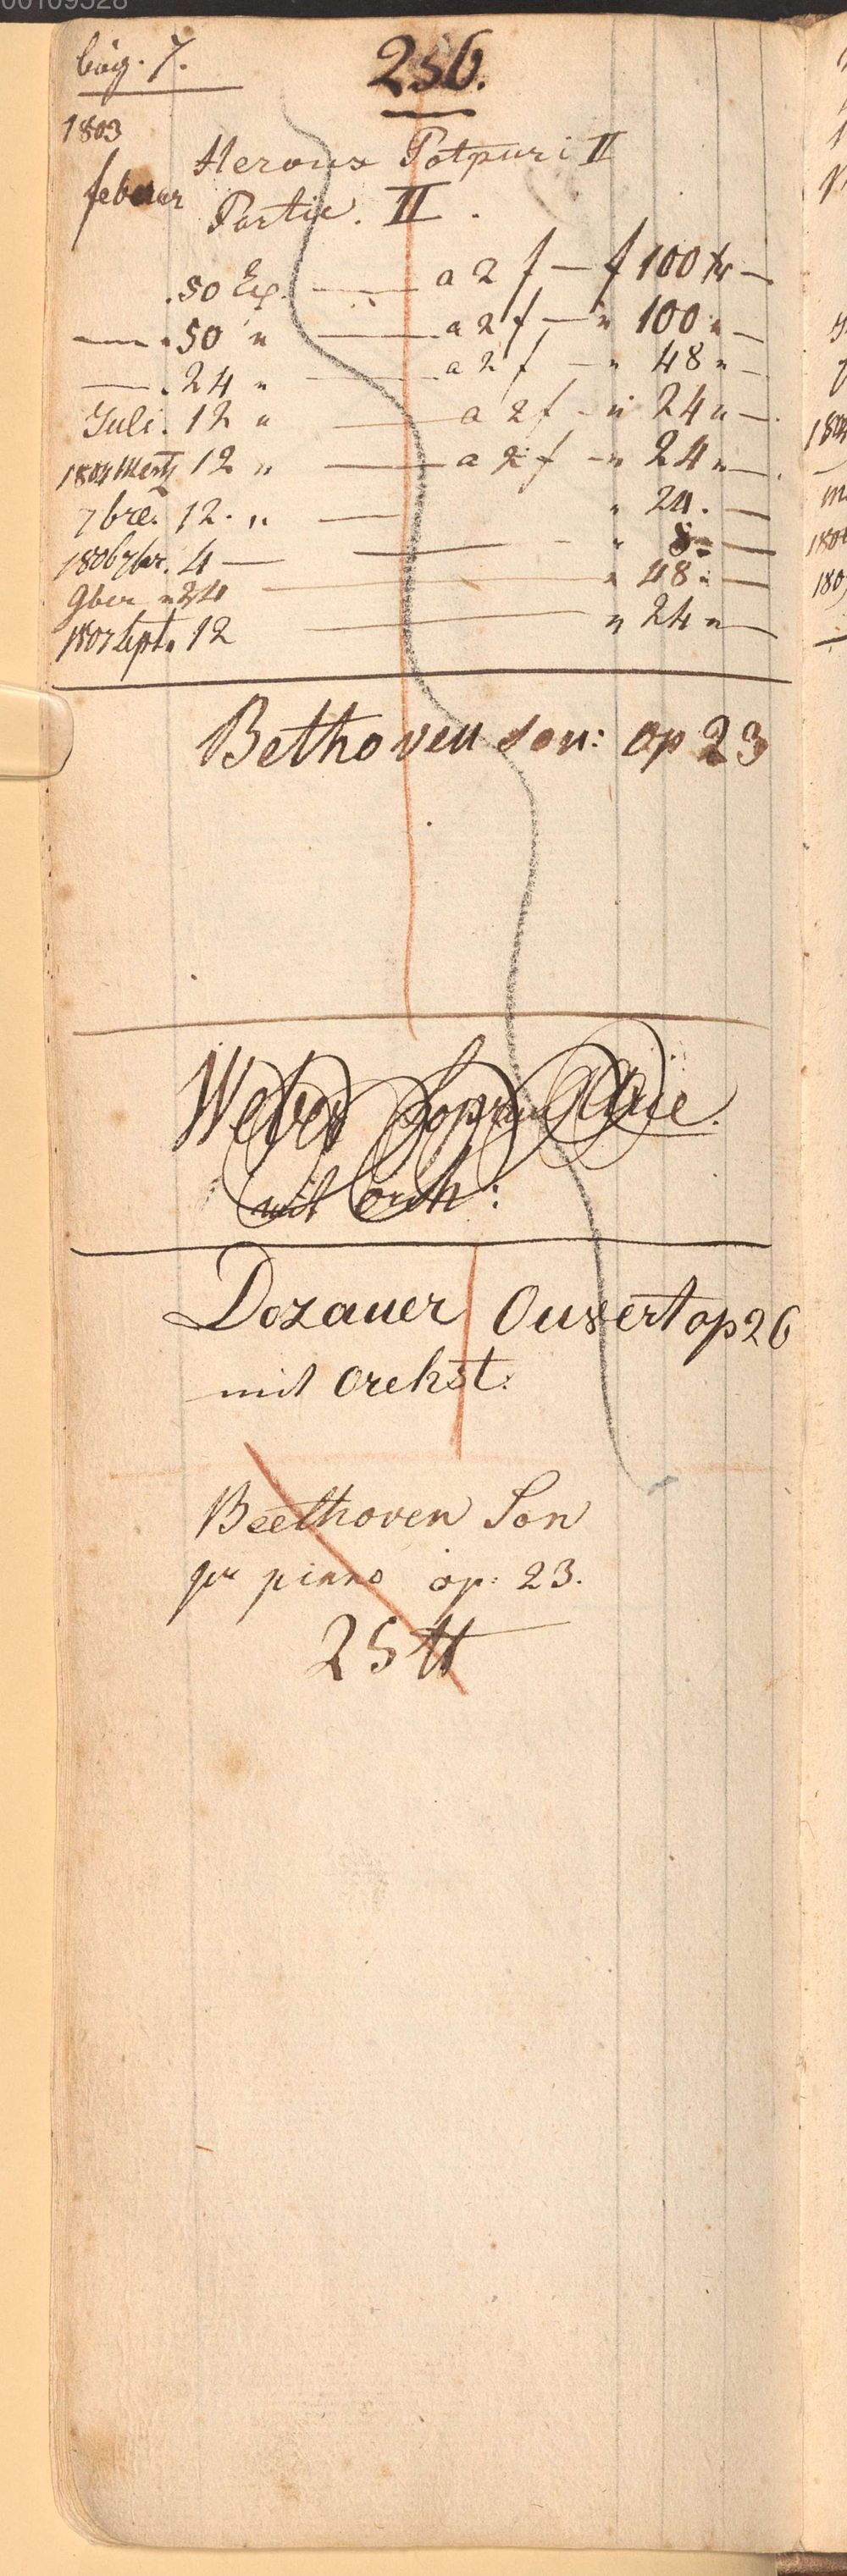 bög. 7.
256.
1803
Heroux Potpuri II
febuar
Partie. II.
.50 Ex. — a 2 f — f 100 Xr —
— . 50 " — a 2 f — " 100 " —
— . 24 " — a 2 f — " 48 " —
Juli. 12 " — a 2 f — " 24 " —
1804 Mertz 12 " — a 2 f — " 24 " —
7bre. 12. " — " 24. —
1806 7br. 4 — — " 8 " —
9ber " 24 — " 48 " —
1807 Sept. 12 — " 24 " —
Bethoven son: op 23
Weber Sopran Arie.
mit orch:
Dozauer Ouvert op 26
mit Orchst:
Beethoven Son
pr piano op: 23.
25